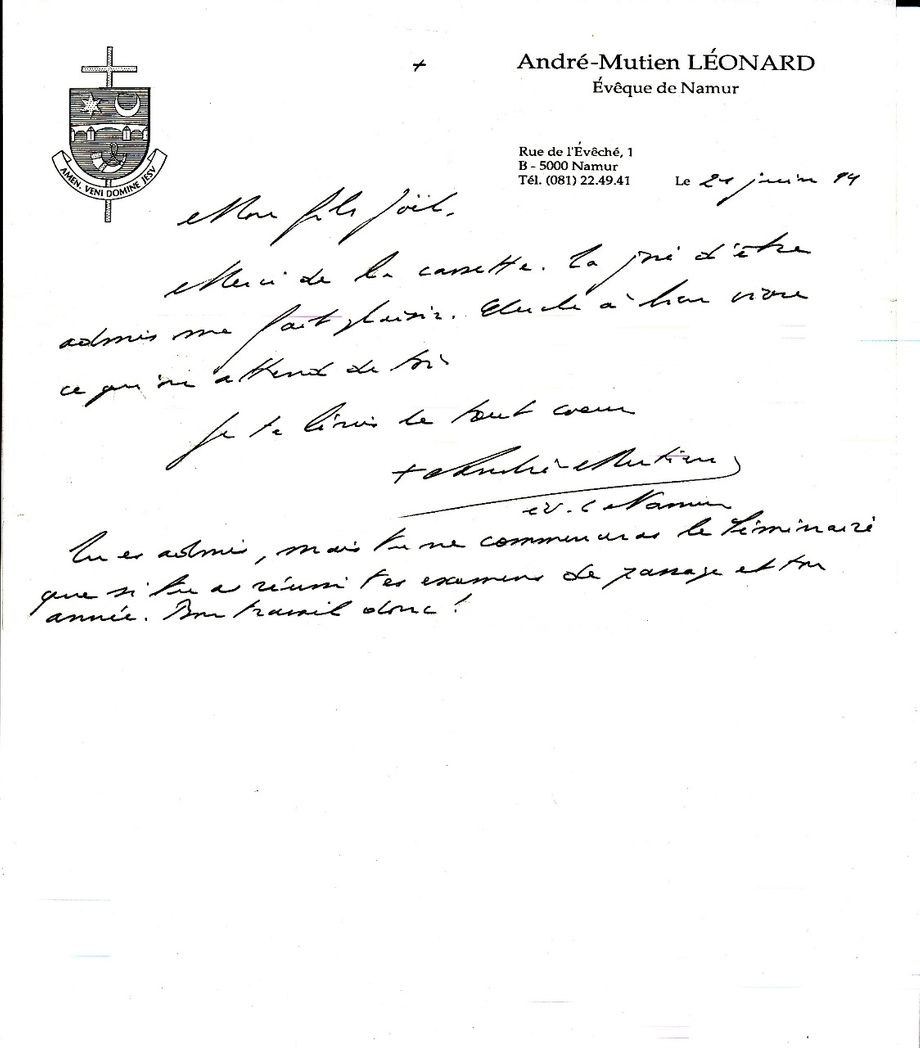 +
André-Mutien LÉONARD
Évêque de Namur
AMEN. VENI DOMINE JESV
Rue de l'Évêché, 1
B - 5000 Namur
Tél. (081) 22.49.41
Le 21 juin 94
Mon fils Joël,
Merci de la cassette. Ta joie d'être
admis me fait plaisir. Cherche à bien vivre
ce qu'on attend de toi
Je te bénis de tout coeur
+ André-Mutien
év. de Namur
Tu es admis, mais tu ne commenceras le Séminaire
que si tu as réussi tes examens de passage et ton
année. Bon travail donc!